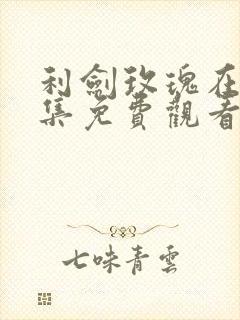 利劍玫瑰在
集免費觀看
七味青雲